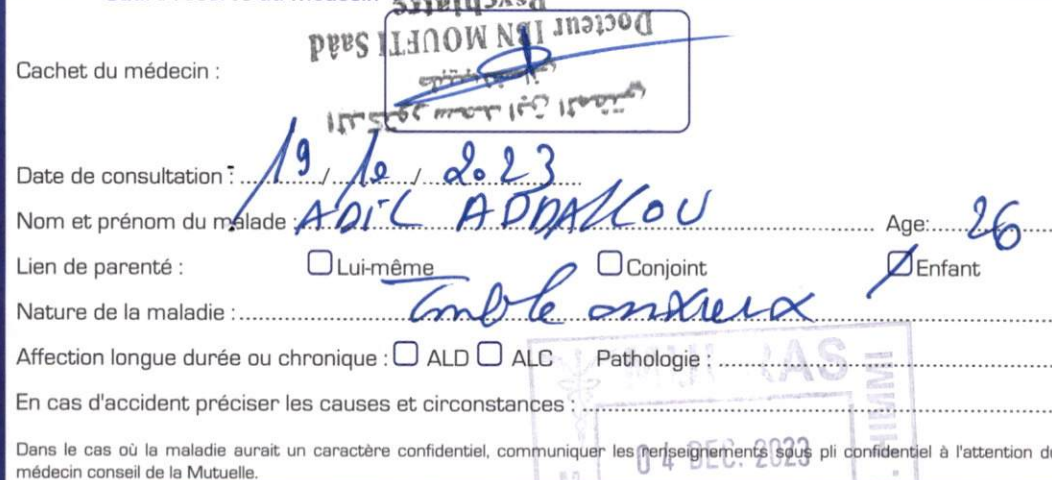 Psychiatre
Docteur IBN MOUFTI Saâd
Cachet du médecin :
الدكتور سعد ابن المفتي
Date de consultation : 19 / 10 / 2023
Nom et prénom du malade : ADIL ADDALLOU Age: 26
Lien de parenté : Lui-même Conjoint Enfant
Nature de la maladie : Trouble anxieux
Affection longue durée ou chronique : ALD ALC Pathologie :
En cas d'accident préciser les causes et circonstances :
04 DEC. 2023
Dans le cas où la maladie aurait un caractère confidentiel, communiquer les renseignements sous pli confidentiel à l'attention du
médecin conseil de la Mutuelle.